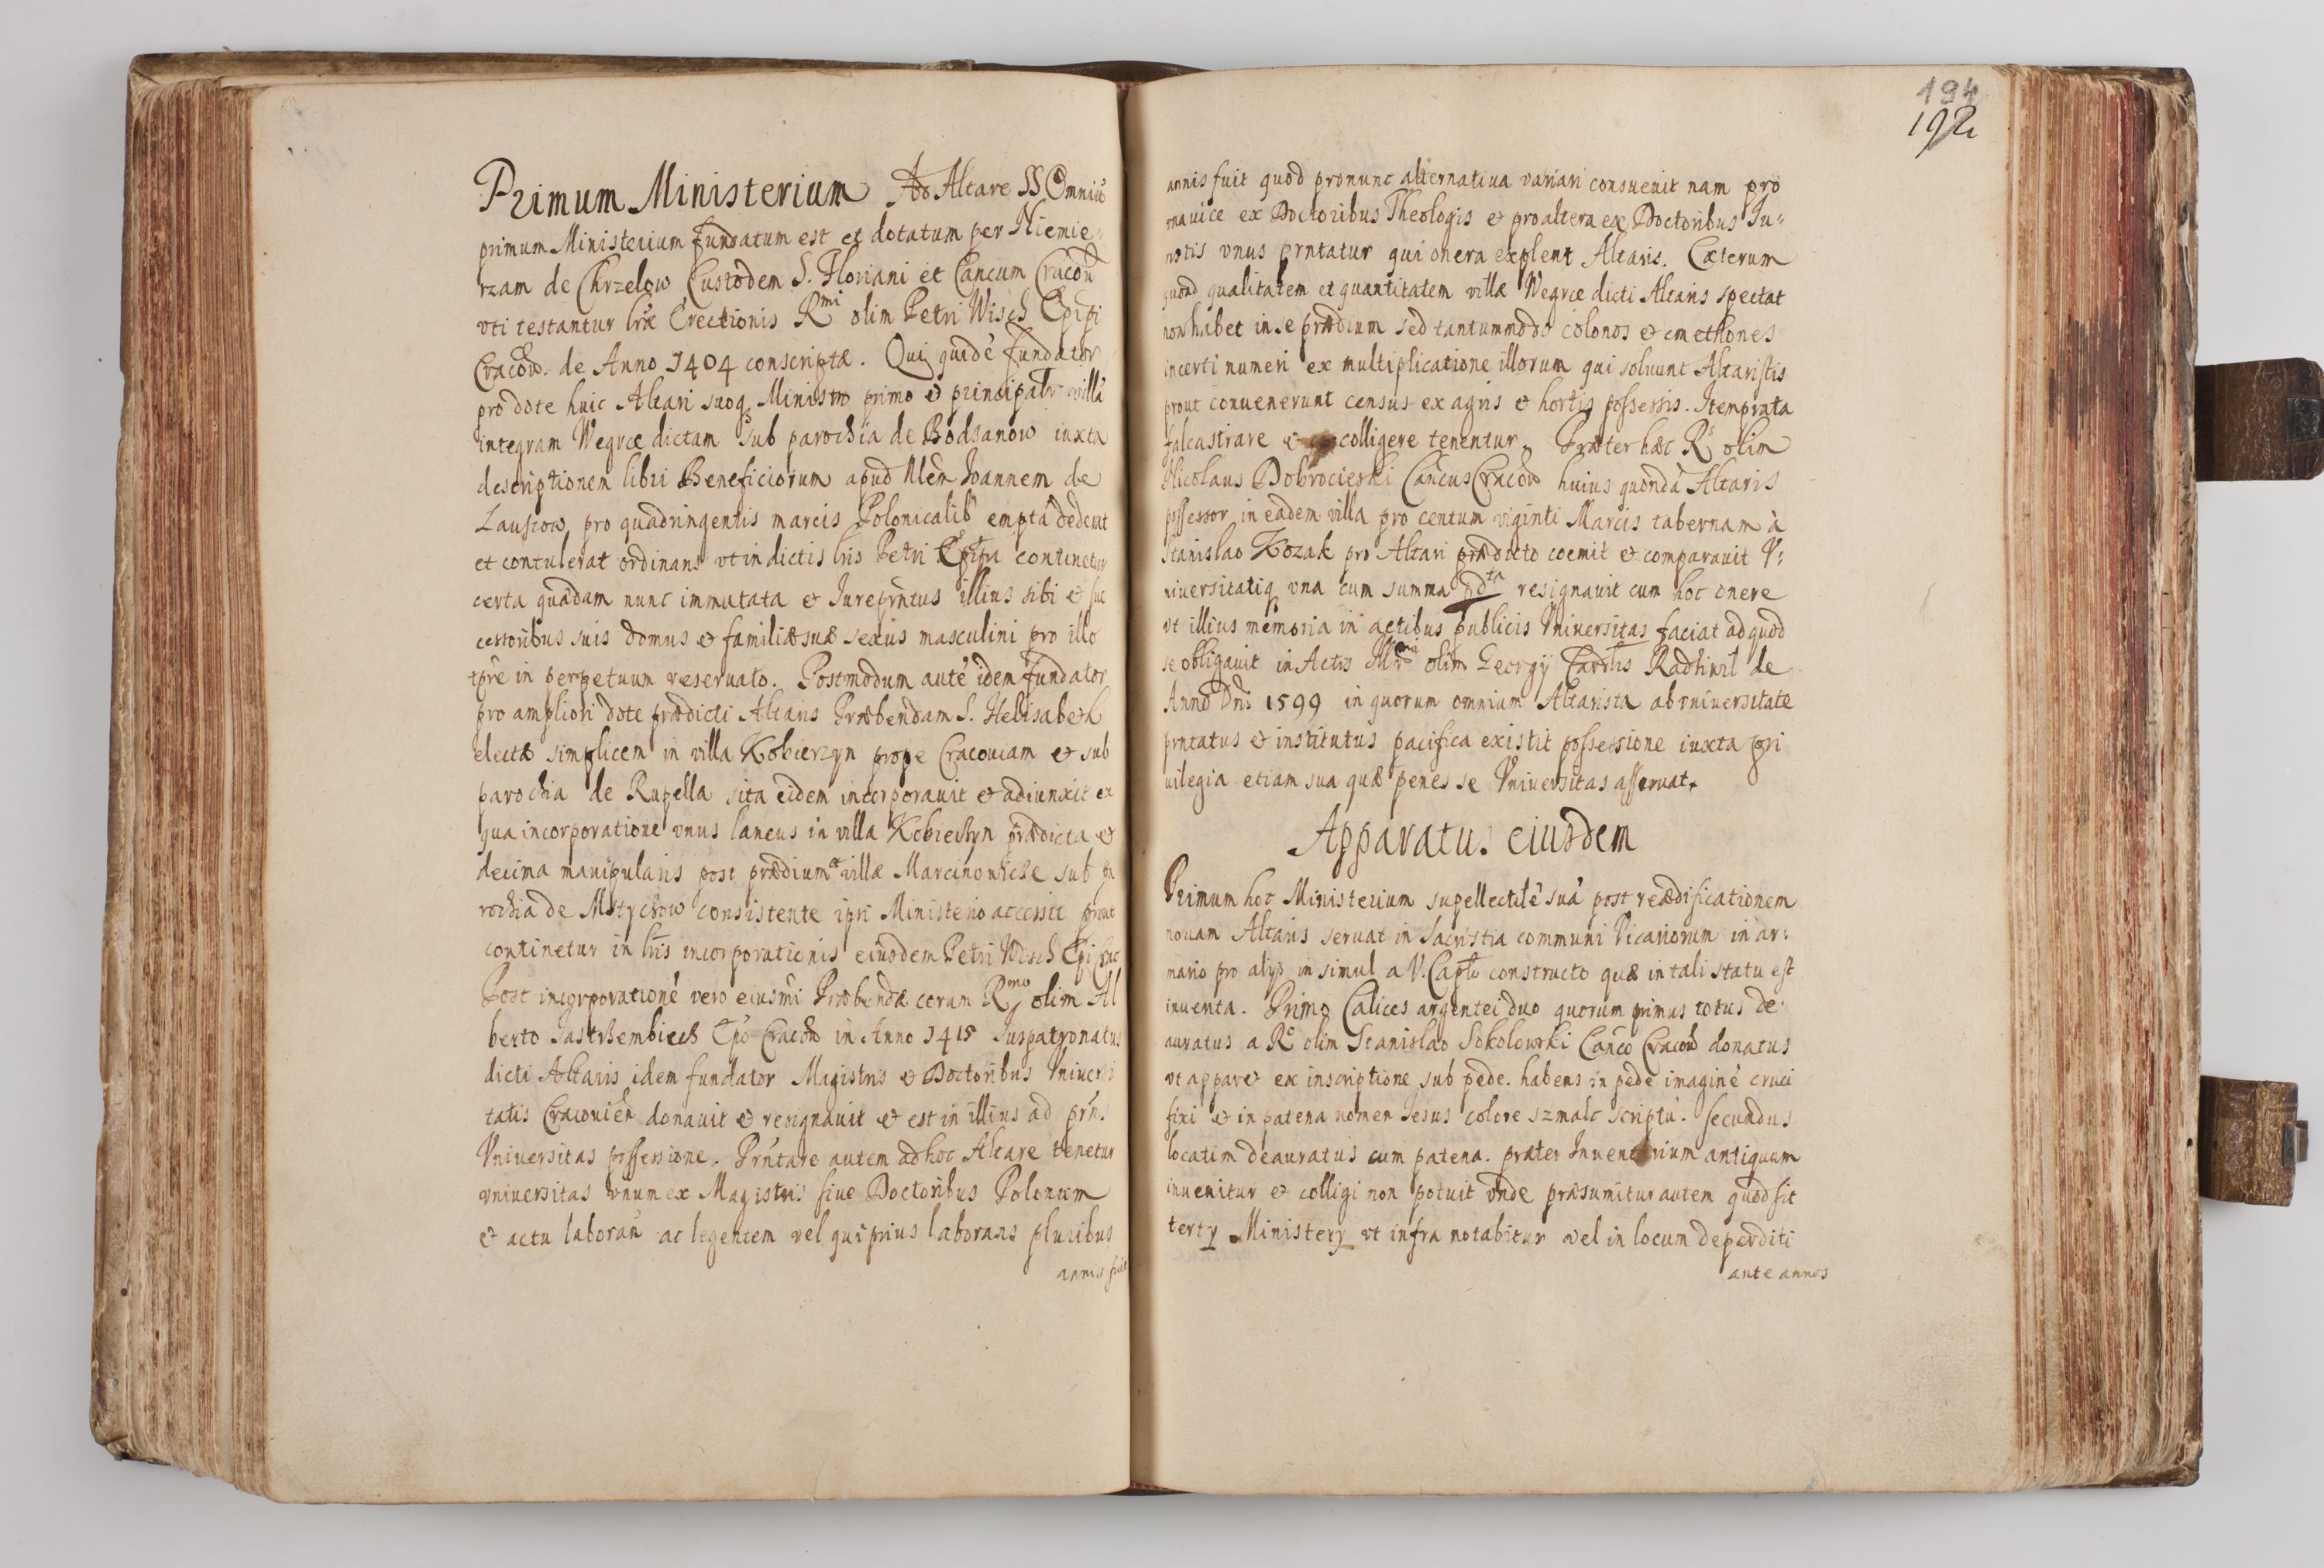 Primum Ministerium Ad Altare SS Omniũ
primum Ministerium fundatum est et dotatum per Niemie-
rzam de Chrzelow Custodem S. Floriani et Cancum Cracoũ
vti testantur lræ Erectionis Rmi olim Petri Wisch Epĩpi
Cracoũ. de Anno 1404 conscriptæ. Qui quidẽ fundator
pro dote huic Altari suoq Ministro primo & principali villã
integram Wegrce dictam sub parochia de Bodsanow iuxta
descriptionem libri Beneficiorum apud Ilẽn Ioannem de
pro quadringentis marcis Polonicalib empta dederat
et contulerat ordinans vt in dictis lris Petri Epĩpi continetur
certa quadam nunc immutata & Iureprñtus illius sibi & suc
cessoribus suis domus & familiæ suæ sexus masculini pro illo
tpre in perpetuum reseruato. Postmodum autẽ idem fundator
pro ampliori dote prædicti Altaris Præbendam S. Helisabeth
electæ simplicem in villa Kobierzyn prope Cracouiam & sub
parochia de Rupella sita eidem incorporauit & adiunxit ex
qua incorporatione vnus laneus in villa Kobierzyn prædicta &
decima manipularis post prædium et villæ Marcinowicze sub pa
rochia de Mstyczow consistente ipsi Ministerio accessit prout
continetur in lris incorporationis eiusdem Petri Wisch Epi Crac
Post incorporationẽ vero eiusmi Præbendæ coram Rmo olim Al
berto Jastrzembiech Epo Cracoũ in Anno 1415 Juspatronatus
dicti Altaris idem fundator Magistris & Doctoribus Vniuersi
tatis Cracouieñ donauit & resignauit & est in illius ad prñs
Vniuersitas possessione. Prñtare autem ad hoc Altare tenetur
vniuersitas vnum ex Magistris siue Doctoribus Polonum
& actu laborañ ac legentem vel qui prius laborans pluribus
annis fuit
194
192
annis fuit quod pronunc alternatiua variari consueuit nam pro
vna vice ex Doctoribus Theologis & pro altera ex Doctoribus Iu-
ristis vnus prntatur qui onera explent Altaris. Cæterum
quoad qualitatem et quantitatem villæ Wegrce dicti Altaris spectat
non habet in se prædium sed tantummodo colonos & cmethones
incerti numeri ex multiplicatione illorum qui soluunt Altaristis
prout conuenerunt census ex agris & hortis possessis. Item prata
falcastrare & colligere tenentur. Præter hæc Rs olim
Nicolaus Dobrocieski Cancus Cracoũ huius quondã Altaris
possessor in eadem villa pro centum viginti Marcis tabernam à
Stanislao Kozak pro Altari prædicto coemit & comparauit V-
niuersitatiq vna cum summa pdta resignauit cum hoc onere
vt illius memoria in actibus publicis Vniuersitas faciat ad quod
se obligauit in Actis olim Georgij Cardlis Radhiwil de
Anno Dni 1599 in quorum omnium Altarista ab vniuersitate
prntatus & institutus pacifica existit possessione iuxta pri
uilegia etiam sua quæ penes se Vniuersitas asseruat.
Apparatus eiusdem
Primum hoc Ministerium supellectilẽ suã post reædificationem
nouam Altaris seruat in Sacristia communi Vicariorum in ar-
mario pro alijs in simul a V. Caplo constructo quæ in tali statu est
inuenta. Primo Calices argentei duo quorum primus totus de-
auratus a Ro olim Stanislao Sokolowski Canco Cracoũ donatus
vt apparet ex inscriptione sub pede. habens in pede imaginẽ cruci
fixi & in patena nomen Iesus colore szmalc scriptũ. secundus
locatim deauratus cum patena. præter Inuentarium antiquum
inuenitur & colligi non potuit vnde præsumitur autem quod sit
tertij Ministerij vt infra notabitur vel in locum deperditi
ante annos